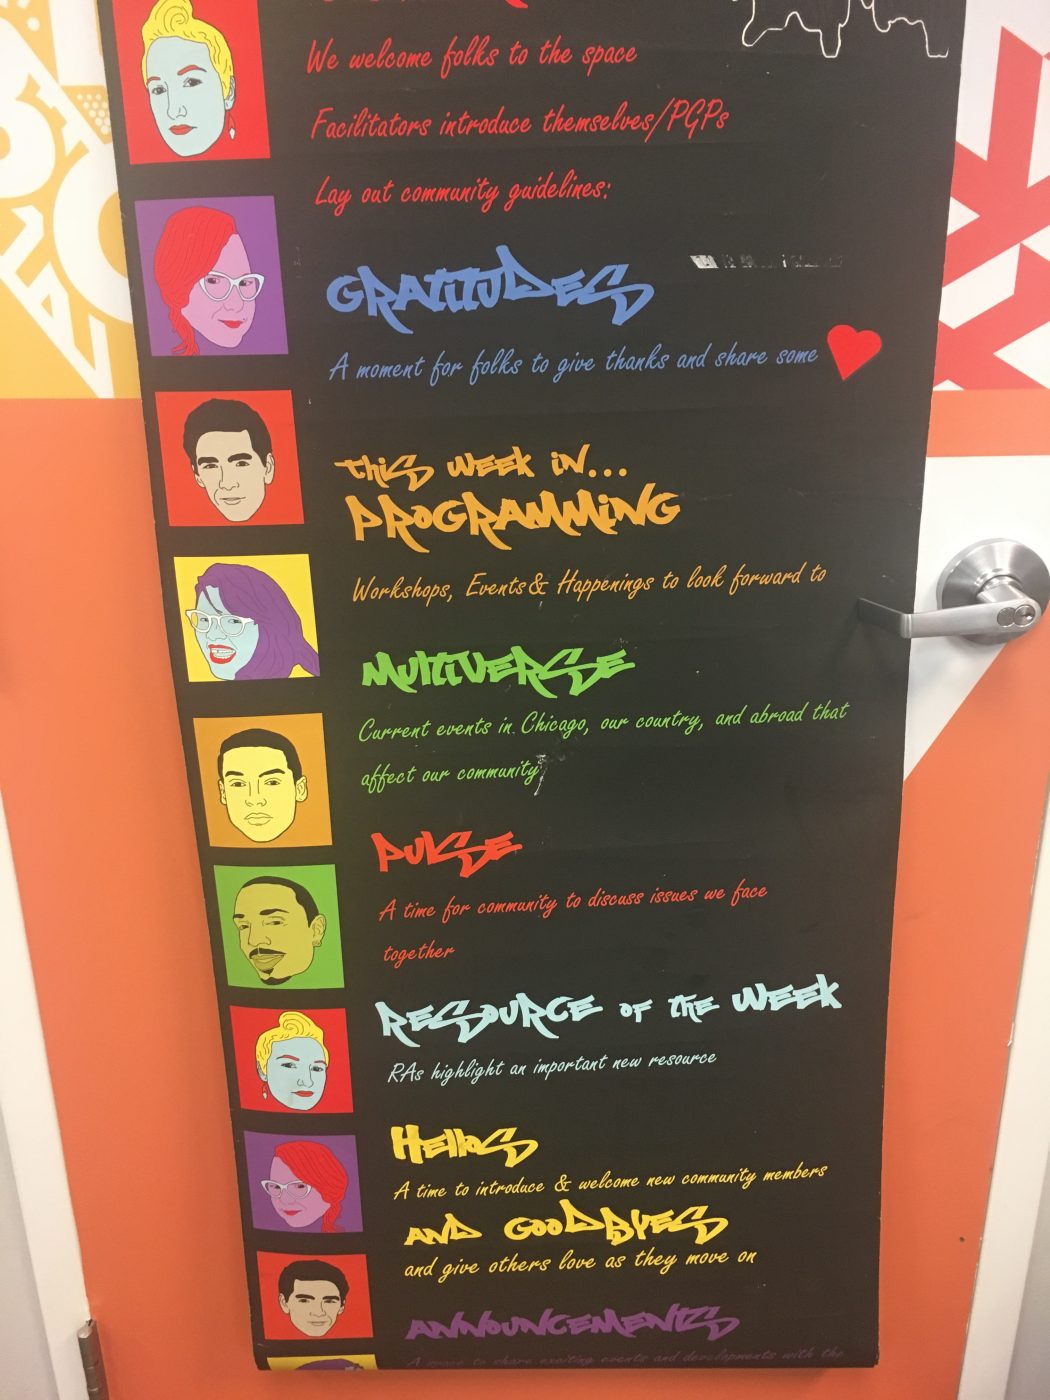 We welcome folks to the space
Facilitators introduce themselves/PGPs
Lay out community guidelines:
GRATITUDES
A moment for folks to give thanks and share some
This week in...
PROGRAMMING
Workshops, Events & Happenings to look forward to
MULTIVERSE
Current events in Chicago, our country, and abroad that
affect our community
PULSE
A time for community to discuss issues we face
together
RESOURCE OF THE WEEK
RAs highlight an important new resource
HELLOS
A time to introduce & welcome new community members
AND GOODBYES
and give others love as they move on
ANNOUNCEMENTS
A space to share exciting events and developments with the